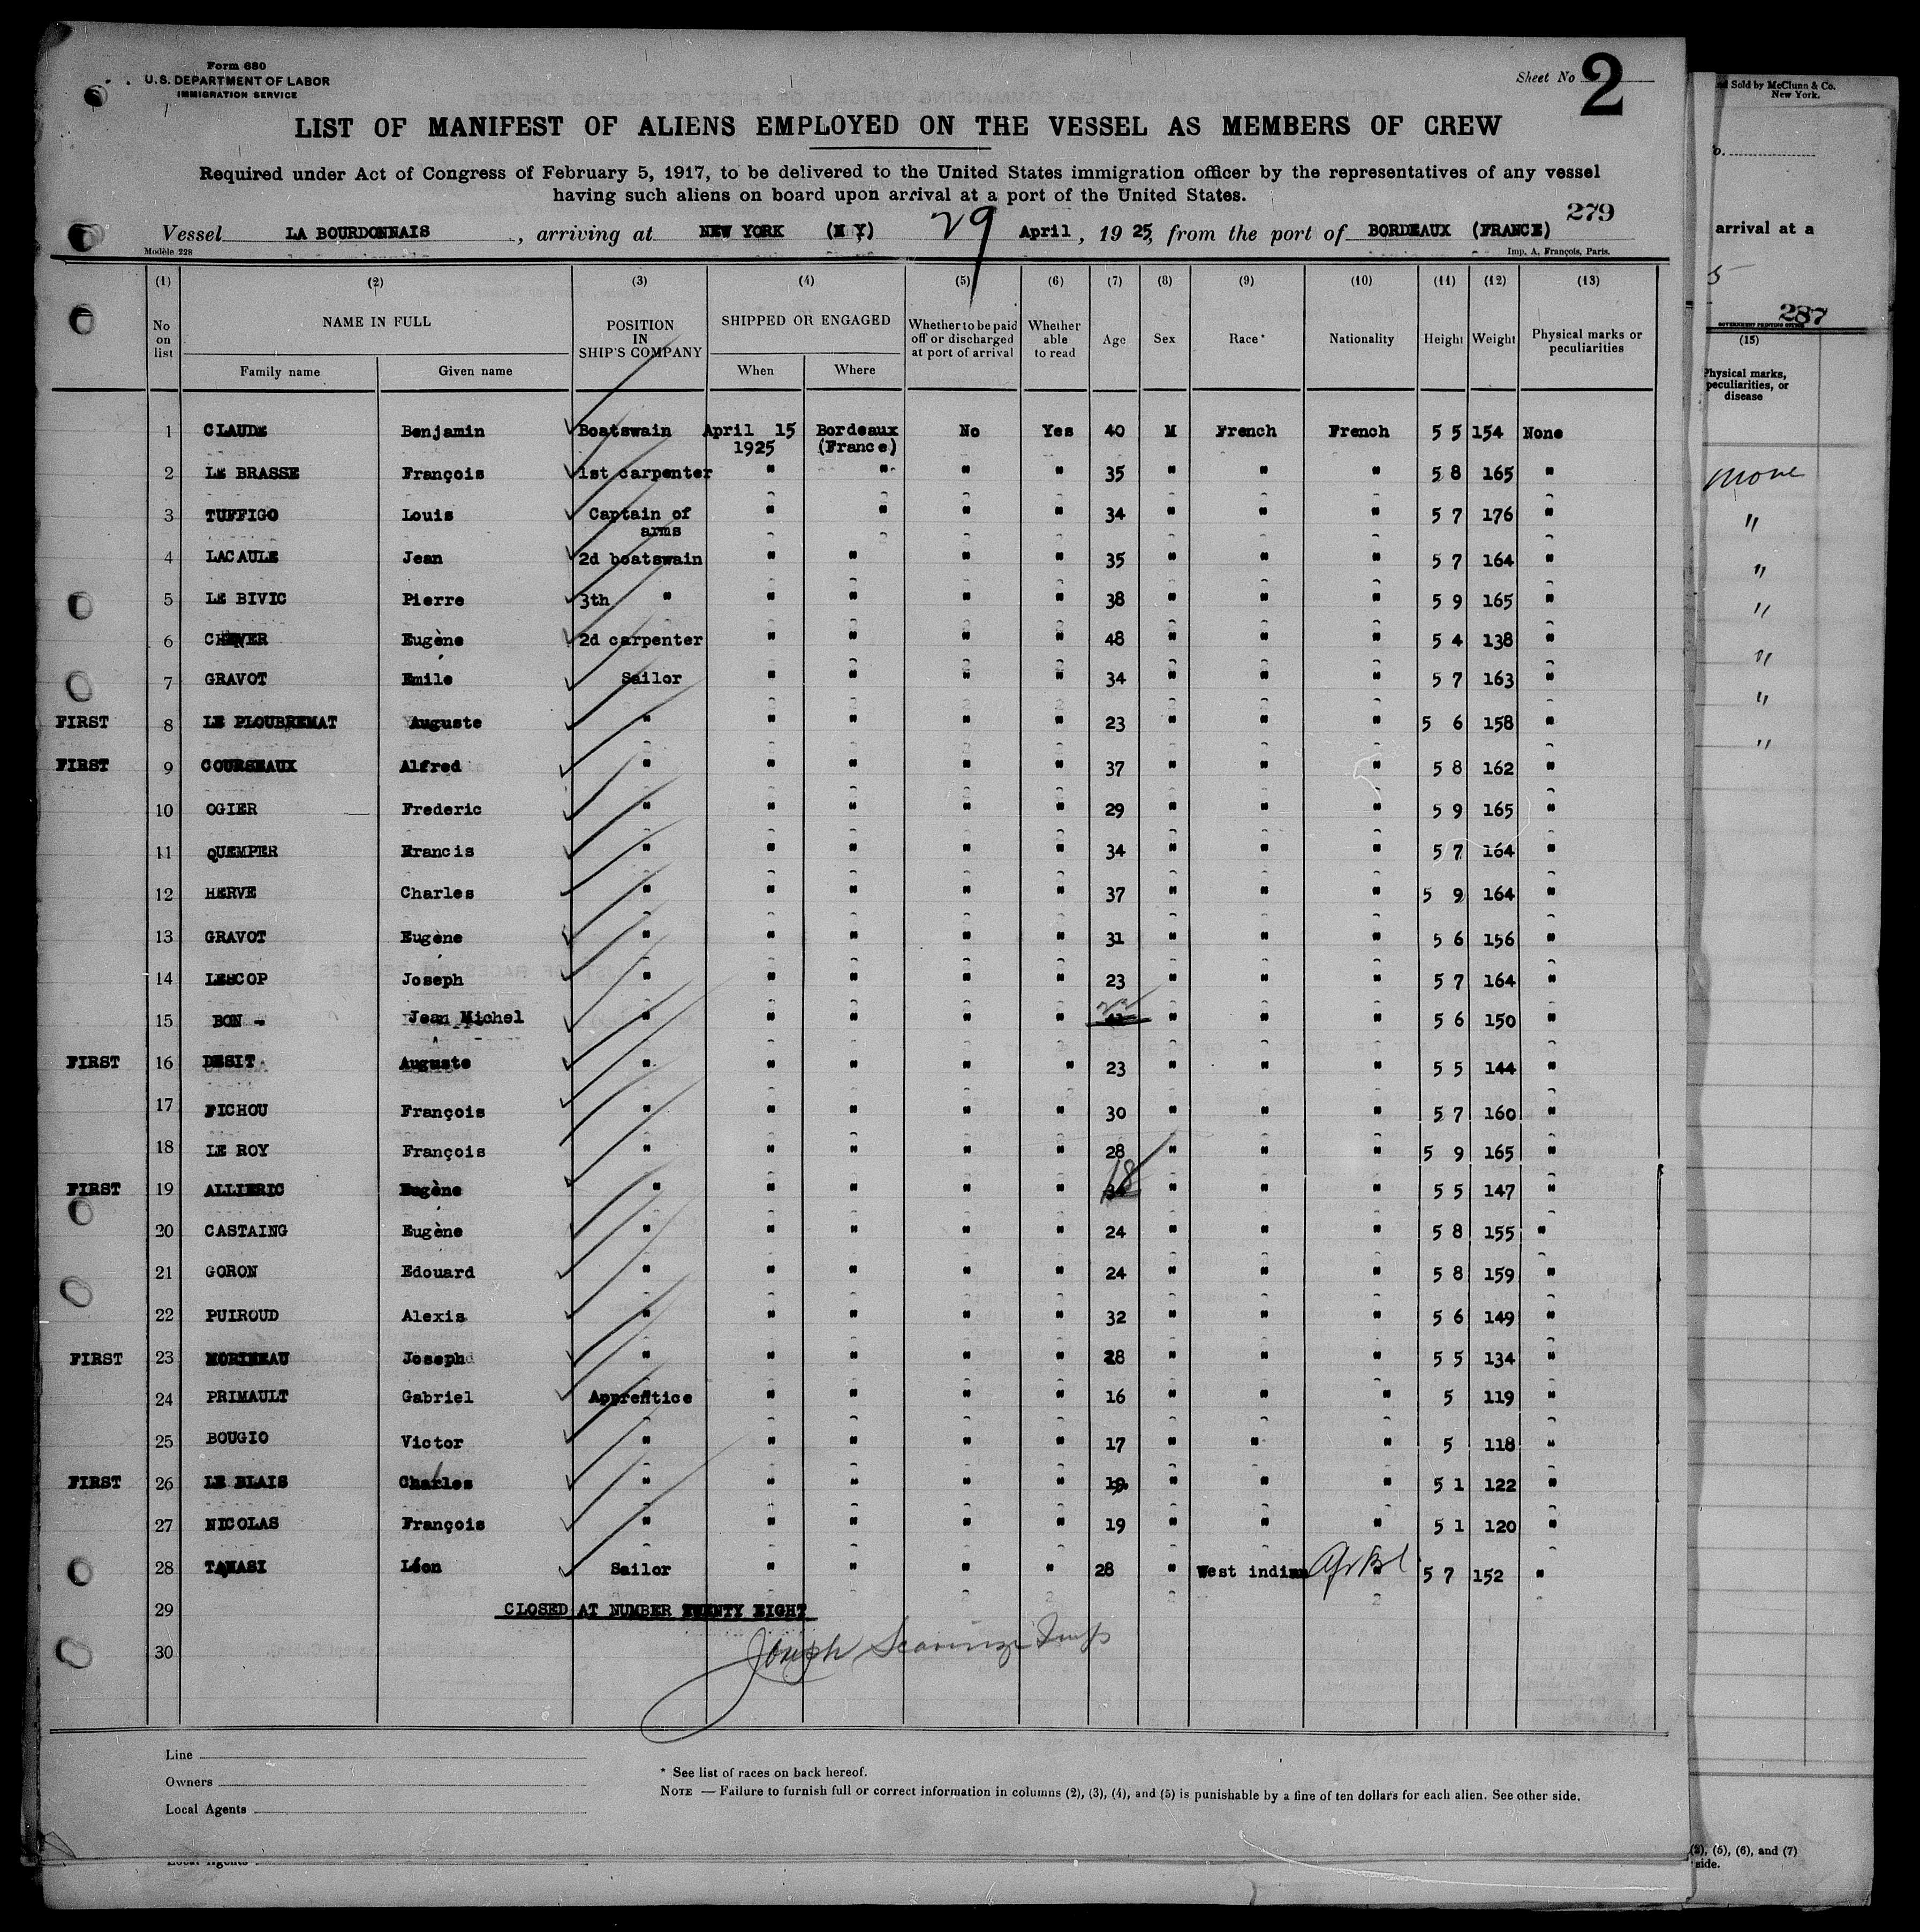 Form 680
U.S. DEPARTMENT OF LABOR
IMMIGRATION SERVICE
Sheet No 2
LIST OF MANIFEST OF ALIENS EMPLOYED ON THE VESSEL AS MEMBERS OF CREW
Required under Act of Congress of February 5, 1917, to be delivered to the United States immigration officer by the representatives of any vessel
having such aliens on board upon arrival at a port of the United States.
279
Vessel LA BOURDONNAIS, arriving at NEW YORK (N Y) 29 April, 1925, from the port of BORDEAUX (FRANCE)
Modèle 228 Imp. A. François, Paris.
(1) (2) (3) (4) (5) (6) (7) (8) (9) (10) (11) (12) (13)
No on list NAME IN FULL Family name Given name POSITION IN SHIP'S COMPANY SHIPPED OR ENGAGED When Where Whether to be paid off or discharged at port of arrival Whether able to read Age Sex Race* Nationality Height Weight Physical marks or peculiarities
1 CLAUDE Benjamin Boatswain April 15 1925 Bordeaux (France) No Yes 40 M French French 5 5 154 None
2 LE BRASSE François 1st carpenter " " " " 35 " " " 5 8 165 "
3 TUFFIGO Louis Captain of arms " " " " 34 " " " 5 7 176 "
4 LACAULE Jean 2d boatswain " " " " 35 " " " 5 7 164 "
5 LE BIVIC Pierre 3th " " " " " 38 " " " 5 9 165 "
6 Eugène 2d carpenter " " " " 48 " " " 5 4 138 "
7 GRAVOT Emile Sailor " " " " 34 " " " 5 7 163 "
FIRST 8 LE PLOUBREMAT Auguste " " " " " 23 " " " 5 6 158 "
FIRST 9 COURSEAUX Alfred " " " " " 37 " " " 5 8 162 "
10 OGIER Frederic " " " " " 29 " " " 5 9 165 "
11 QUEMPER Francis " " " " " 34 " " " 5 7 164 "
12 HERVE Charles " " " " " 37 " " " 5 9 164 "
13 GRAVOT Eugène " " " " " 31 " " " 5 6 156 "
14 LESCOP Joseph " " " " " 23 " " " 5 7 164 "
15 BON - Jean Michel " " " " " " " " 5 6 150 "
FIRST 16 DESIT Auguste " " " " " 23 " " " 5 5 144 "
17 FICHOU François " " " " " 30 " " " 5 7 160 "
18 LE ROY François " " " " " 28 " " " 5 9 165 "
FIRST 19 ALLIERIC Eugène " " " " " 18 " " " 5 5 147 "
20 CASTAING Eugène " " " " " 24 " " " 5 8 155 "
21 GORON Edouard " " " " " 24 " " " 5 8 159 "
22 PUIROUD Alexis " " " " " 32 " " " 5 6 149 "
FIRST 23 MORINEAU Joseph " " " " " 28 " " " 5 5 134 "
24 PRIMAULT Gabriel Apprentice " " " " 16 " " " 5 119 "
25 BOUGIO Victor " " " " " 17 " " " 5 118 "
FIRST 26 LE BLAIS Charles " " " " " 19 " " " 5 1 122 "
27 NICOLAS François " " " " " 19 " " " 5 1 120 "
28 Léon Sailor " " " " 28 " West indian " 5 7 152 "
29 CLOSED AT NUMBER TWENTY EIGHT
Joseph
30
Line
Owners
Local Agents
* See list of races on back hereof.
NOTE — Failure to furnish full or correct information in columns (2), (3), (4), and (5) is punishable by a fine of ten dollars for each alien. See other side.
Local Agents
nd Sold by McClunn & Co.
New York.
o.
arrival at a
5
287
GOVERNMENT PRINTING OFFICE
(15)
Physical marks,
peculiarities, or
disease
"
"
"
"
"
"
(3), (5), (6), and (7)
side.